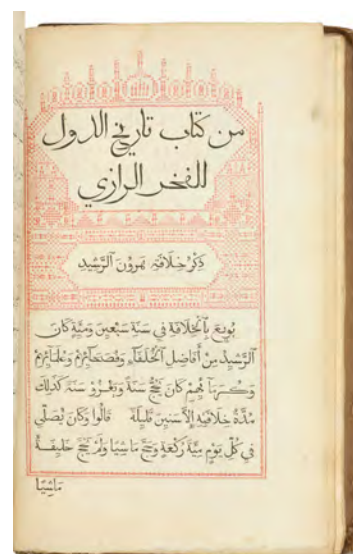 من كتاب تاريخ الدول
للفخر الرازي
ذِكْرُ خِلَافَةِ هَرُونَ ٱلرَّشِيدِ
بُويِعَ بِٱلْخِلَافَةِ فِي سَنَةِ سَبْعِينَ وَمِئَةٍ كَانَ
ٱلرَّشِيدُ مِنْ أَفَاضِلِ ٱلْخُلَفَآءِ وَفُصَحَآئِهِمْ وَعُلَمَآئِهِمْ
وَكُرَمَآئِهِمْ كَانَ يَحُجُّ سَنَةً وَيَغْزُو سَنَةً كَذٰلِكَ
مُدَّةُ خِلَافَتِهِ إِلَّا سِنِينَ قَلِيلَةً قَالُوا وَكَانَ يُصَلِّي
فِي كُلِّ يَوْمٍ مِئَةَ رَكْعَةٍ وَحَجَّ مَاشِيًا وَلَمْ يَحُجَّ خَلِيفَةٌ
مَاشِيًا